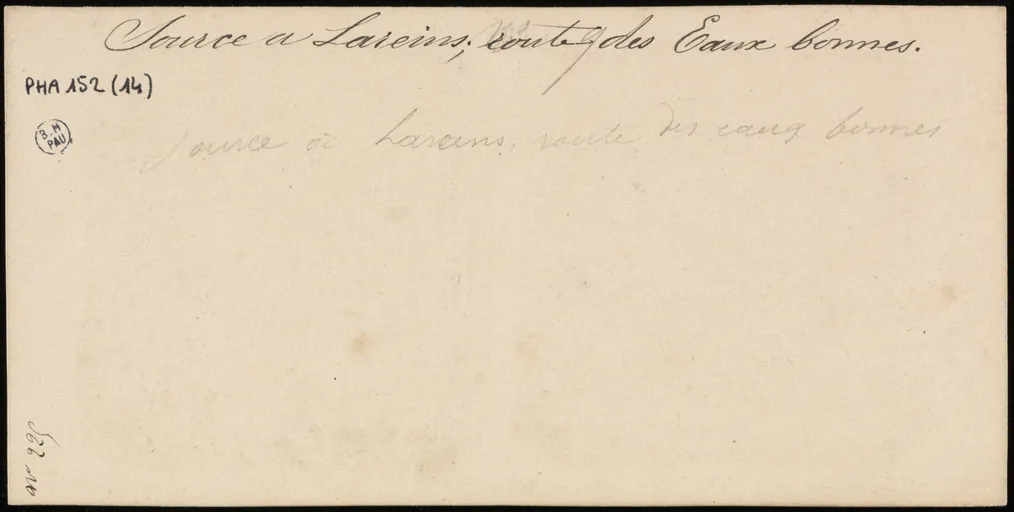 Source a Lareins, route des Eaux bonnes.
PHA 152 (14)
B.M
PAU
Source à Lareins, route des eaux bonnes